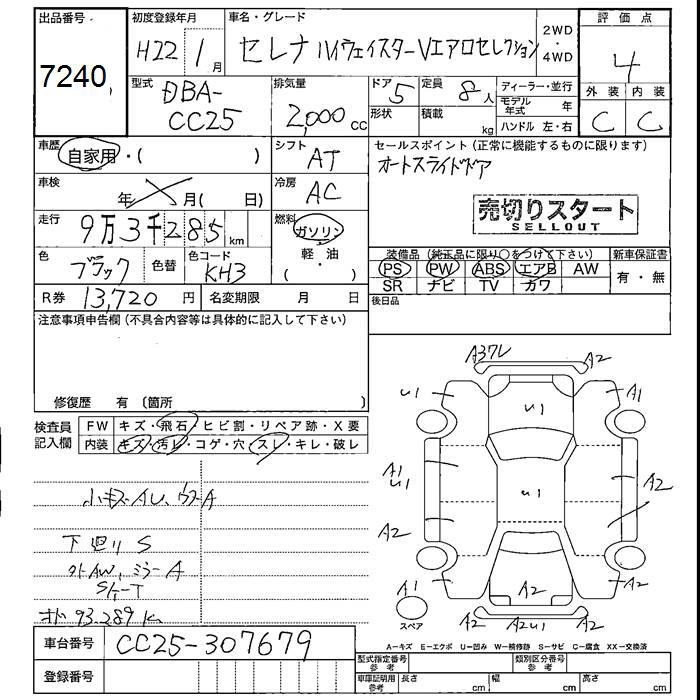 出品番号 初度登録年月 車名・グレード 2WD 評価点
7240 H22 1月 セレナ ハイウェイスターVエアロセレクション ・ 4WD 4
型式 排気量 ドア 定員 ディーラー・並行 外装 内装
DBA-CC25 2,000cc 5 8人 モデル年式 年 C C
形状 積載 kg ハンドル 左・右
車歴 自家用・( ) シフト AT セールスポイント(正常に機能するものに限ります)
オートスライドドア
車検 年 月( 日) 冷房 AC
売切りスタート
SELLOUT
走行 9万3千285km 燃料 ガソリン・軽油・( )
色 ブラック 色替 色コード KH3
装備品(純正品に限り○をつけて下さい) 新車保証書
PS PW ABS エアB AW 有・無
SR ナビ TV カワ
R券 13,720円 名変期限 月 日 後日品
注意事項申告欄(不具合内容等は具体的に記入して下さい)
修復歴 有 〔箇所 〕
検査員記入欄 FW キズ・飛石・ヒビ割・リペア跡・X要
内装 キズ・汚レ・コゲ・穴・スレ・キレ・破レ
小キズ
下廻り S
外AW、ミラーA
93,289K
A3
A2
U1
U1
A1
A1
U1
U1
A2
A2
A2
A1
スペア
A2
A2
A2
A2U1
A2
A-キズ E-エクボ U-凹み W-補修跡 S-サビ C-腐食 XX-交換済
車台番号 CC25-307679
型式指定番号 参考 類別区分番号 参考
登録番号 車庫証明用 参考 長さ cm 幅 cm 高さ cm